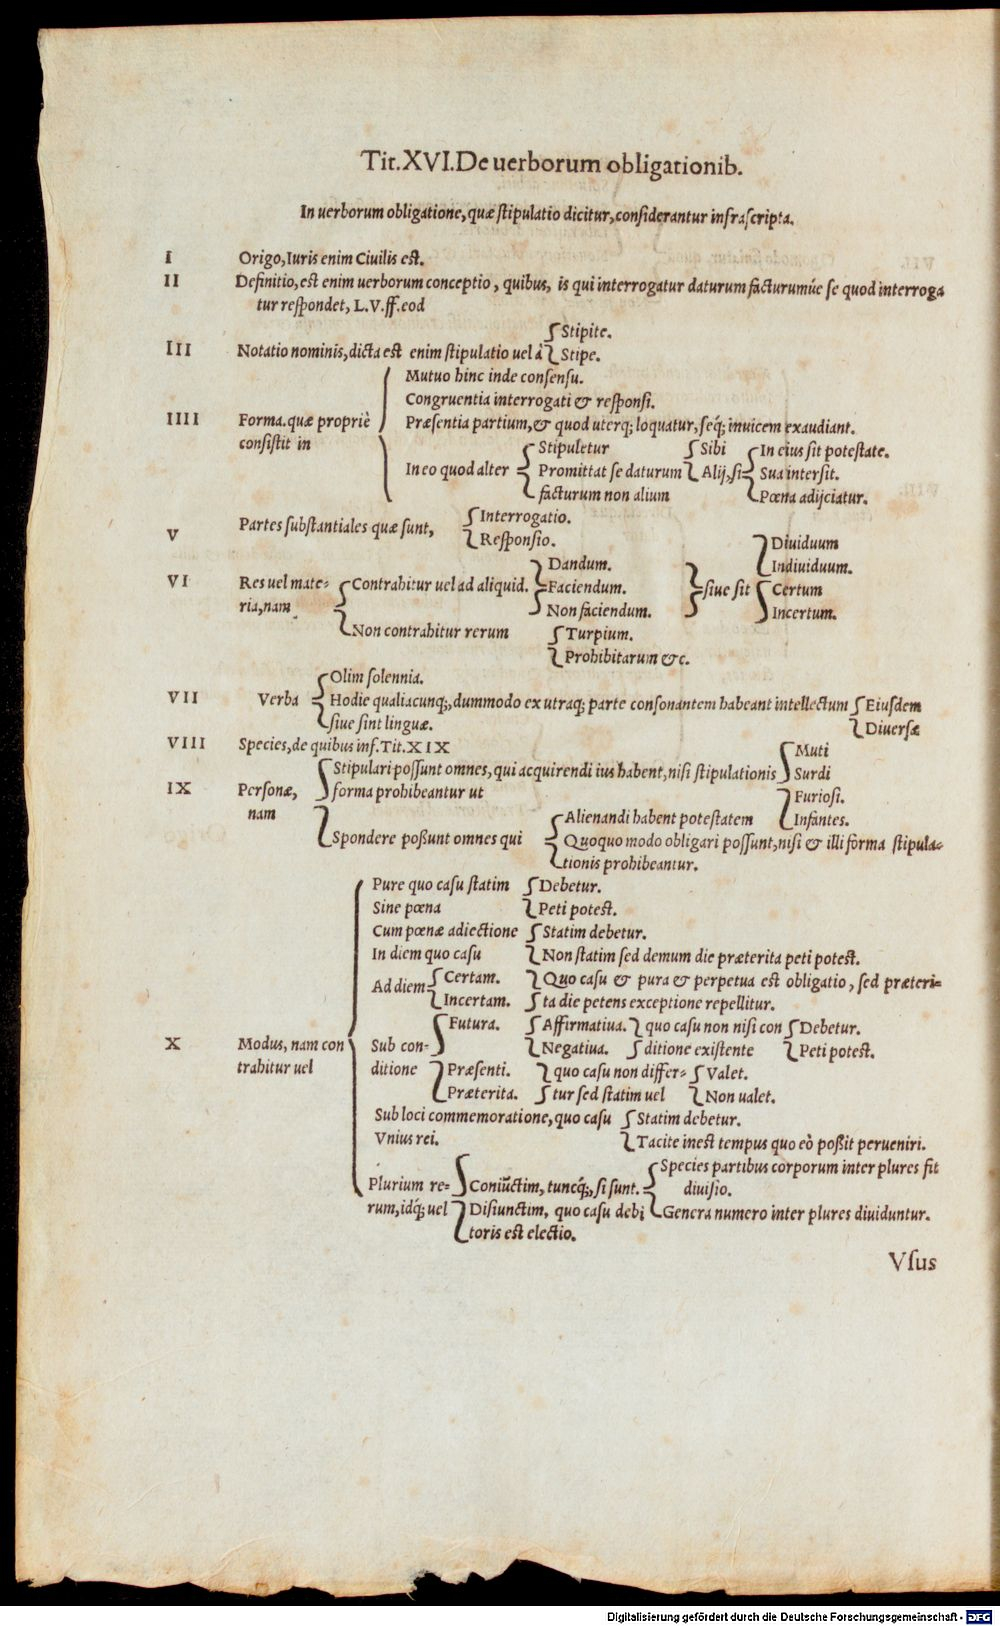 Tit. XVI. De uerborum obligationib.
In uerborum obligatione, quæ ſtipulatio dicitur, conſiderantur infraſcripta.
I Origo, Iuris enim Ciuilis eſt.
II Definitio, eſt enim uerborum conceptio, quibus, is qui interrogatur daturum facturumúe ſe quod interroga
tur reſpondet, L. V. ff. eod
Stipite.
III Notatio nominis, dicta eſt enim ſtipulatio uel à Stipe.
Mutuo hinc inde conſenſu.
Congruentia interrogati & reſponſi.
IIII Forma. quæ propriè Præſentia partium, & quod uterq; loquatur, ſeq́; inuicem exaudiant.
conſiſtit in Stipuletur Sibi In eius ſit poteſtate.
In eo quod alter Promittat ſe daturum Alij, ſi Sua interſit.
facturum non alium Pœna adijciatur.
V Partes ſubſtantiales quæ ſunt, Interrogatio.
Reſponſio. Diuiduum
Dandum. Indiuiduum.
VI Res uel mate- Contrahitur uel ad aliquid. Faciendum. ſiue ſit Certum
ria, nam Non faciendum. Incertum.
Non contrahitur rerum Turpium.
Prohibitarum &c.
Olim ſolennia.
VII Verba Hodie qualiacunq;, dummodo ex utraq; parte conſonantem habeant intellectum Eiuſdem
ſiue ſint linguæ. Diuerſæ
VIII Species, de quibus inf. Tit. XIX Muti
Stipulari poſſunt omnes, qui acquirendi ius habent, niſi ſtipulationis Surdi
IX Perſonæ, forma prohibeantur ut Furioſi.
nam Alienandi habent poteſtatem Infantes.
Spondere poßunt omnes qui Quoquo modo obligari poſſunt, niſi & illi forma ſtipula-
tionis prohibeantur.
Pure quo caſu ſtatim Debetur.
Sine pœna Peti poteſt.
Cum pœnæ adiectione Statim debetur.
In diem quo caſu Non ſtatim ſed demum die præterita peti poteſt.
Ad diem Certam. Quo caſu & pura & perpetua eſt obligatio, ſed præteri-
Incertam. ta die petens exceptione repellitur.
Futura. Affirmatiua. quo caſu non niſi con Debetur.
X Modus, nam con Sub con- Negatiua. ditione exiſtente Peti poteſt.
trahitur uel ditione Præſenti. quo caſu non differ- Valet.
Præterita. tur ſed ſtatim uel Non ualet.
Sub loci commemoratione, quo caſu Statim debetur.
Vnius rei. Tacite ineſt tempus quo eò poßit perueniri.
Species partibus corporum inter plures fit
Plurium re- Coniūctim, tuncq́;, ſi ſunt. diuiſio.
rum, idq́; uel Diſiunctim, quo caſu debi Genera numero inter plures diuiduntur.
toris eſt electio.
Vſus
Digitalisierung gefördert durch die Deutsche Forschungsgemeinschaft - DFG